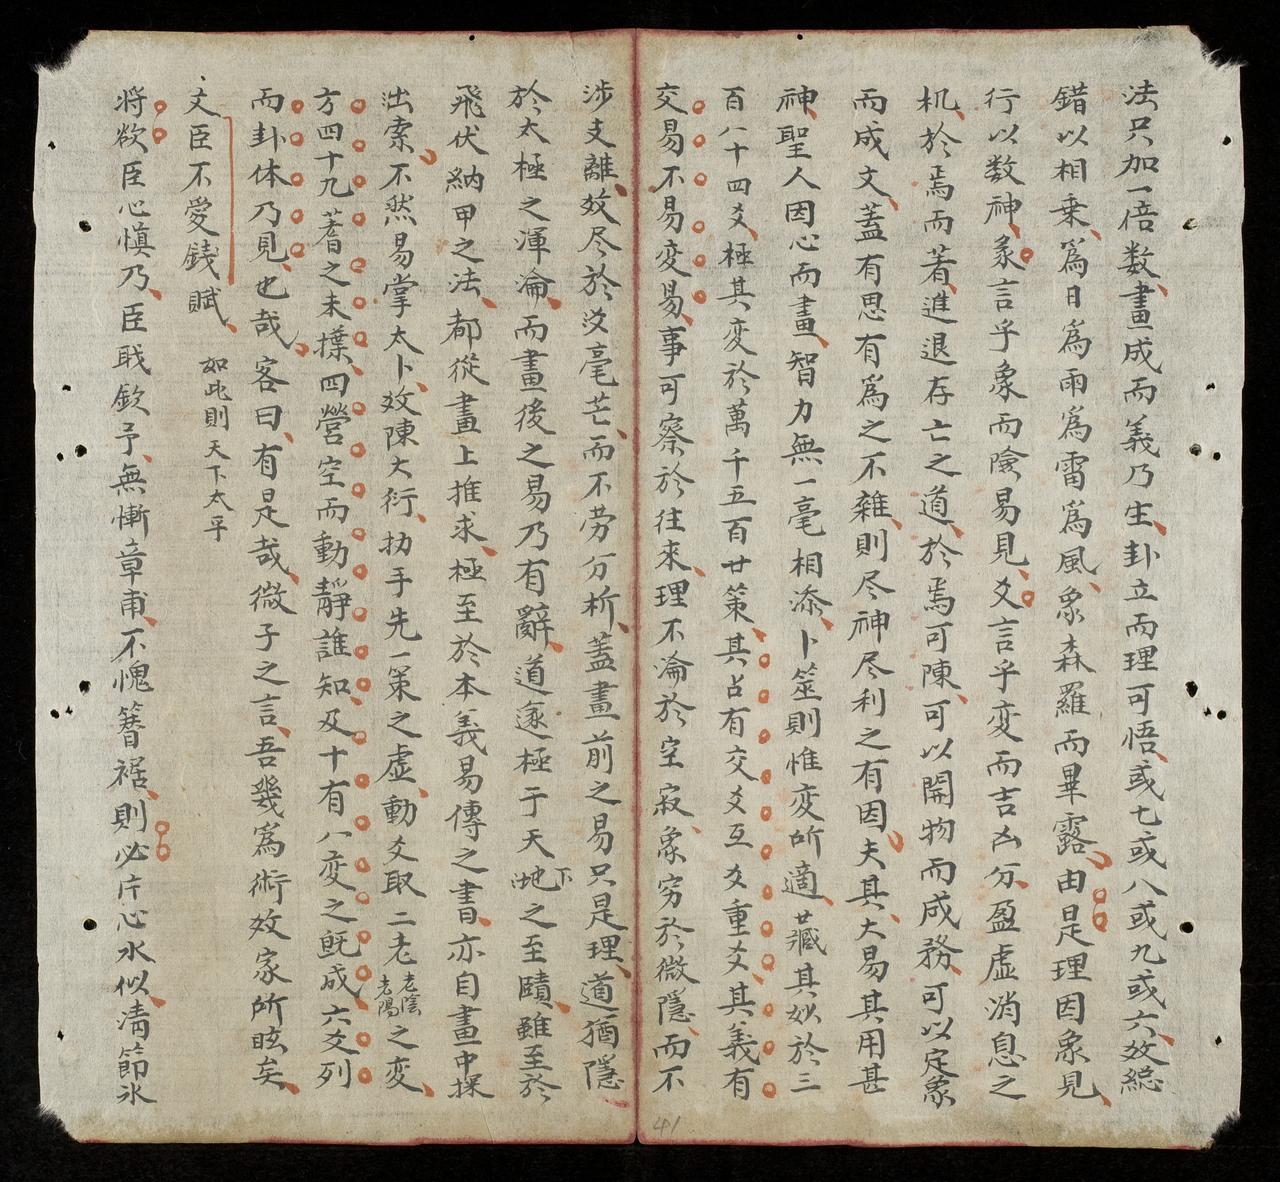 法只加一倍数畫成而義乃生卦立而理可悟或七或八或九或六效総
錯以相乗為日為雨為雷為風象森羅而畢露由是理因象見
行以数神彖言乎象而險易見爻言乎変而吉凶分盈虚消息之
机於焉而著進退存亡之道於焉可陳可以開物而成務可以定象
而成文蓋有思有為之不雜則尽神尽利之有因夫其大易其用甚
神聖人因心而畫智力無一毫相添卜筮則惟変所適藏其妙於三
百八十四爻極其変於萬千五百廿策其占有交爻互爻重爻其義有
交易不易変易事可察於往來理不淪於空寂象穷於微隱而不
涉支離效尽於汶毫芒而不劳分析蓋畫前之易只是理道猶隱
於太極之渾淪而畫後之易乃有辭道遂極于天地下之至賾雖至於
飛伏納甲之法都從畫上推求極至於本義易傳之書亦自畫中探
出索不然易掌太卜效陳大衍扐手先一策之虚動爻取二老老陰老陽之変
方四十九蓍之未揲四營空而動靜誰知及十有八変之既成六爻列
而卦体乃見也哉客曰有是哉微子之言吾幾為術效家所眩矣
文臣不愛錢賦 如此則天下太平
將欲臣心慎乃臣職欽予無慚章甫不愧簪裾則必片心水似清節氷
41